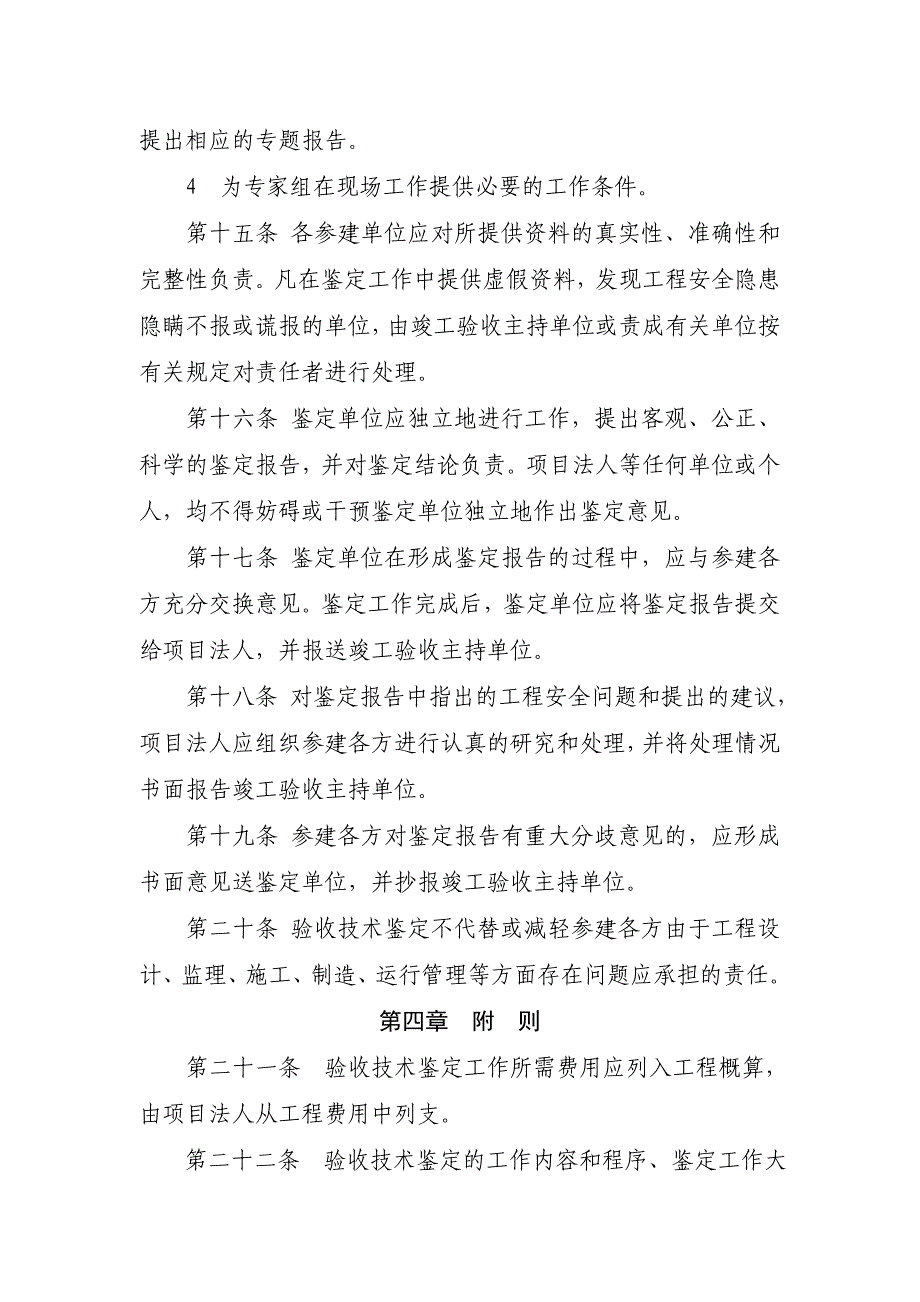 提出相应的专题报告。
4　为专家组在现场工作提供必要的工作条件。
第十五条 各参建单位应对所提供资料的真实性、准确性和
完整性负责。凡在鉴定工作中提供虚假资料，发现工程安全隐患
隐瞒不报或谎报的单位，由竣工验收主持单位或责成有关单位按
有关规定对责任者进行处理。
第十六条 鉴定单位应独立地进行工作，提出客观、公正、
科学的鉴定报告，并对鉴定结论负责。项目法人等任何单位或个
人，均不得妨碍或干预鉴定单位独立地作出鉴定意见。
第十七条 鉴定单位在形成鉴定报告的过程中，应与参建各
方充分交换意见。鉴定工作完成后，鉴定单位应将鉴定报告提交
给项目法人，并报送竣工验收主持单位。
第十八条 对鉴定报告中指出的工程安全问题和提出的建议，
项目法人应组织参建各方进行认真的研究和处理，并将处理情况
书面报告竣工验收主持单位。
第十九条 参建各方对鉴定报告有重大分歧意见的，应形成
书面意见送鉴定单位，并抄报竣工验收主持单位。
第二十条 验收技术鉴定不代替或减轻参建各方由于工程设
计、监理、施工、制造、运行管理等方面存在问题应承担的责任。
第四章　附　则
第二十一条　验收技术鉴定工作所需费用应列入工程概算，
由项目法人从工程费用中列支。
第二十二条　验收技术鉴定的工作内容和程序、鉴定工作大